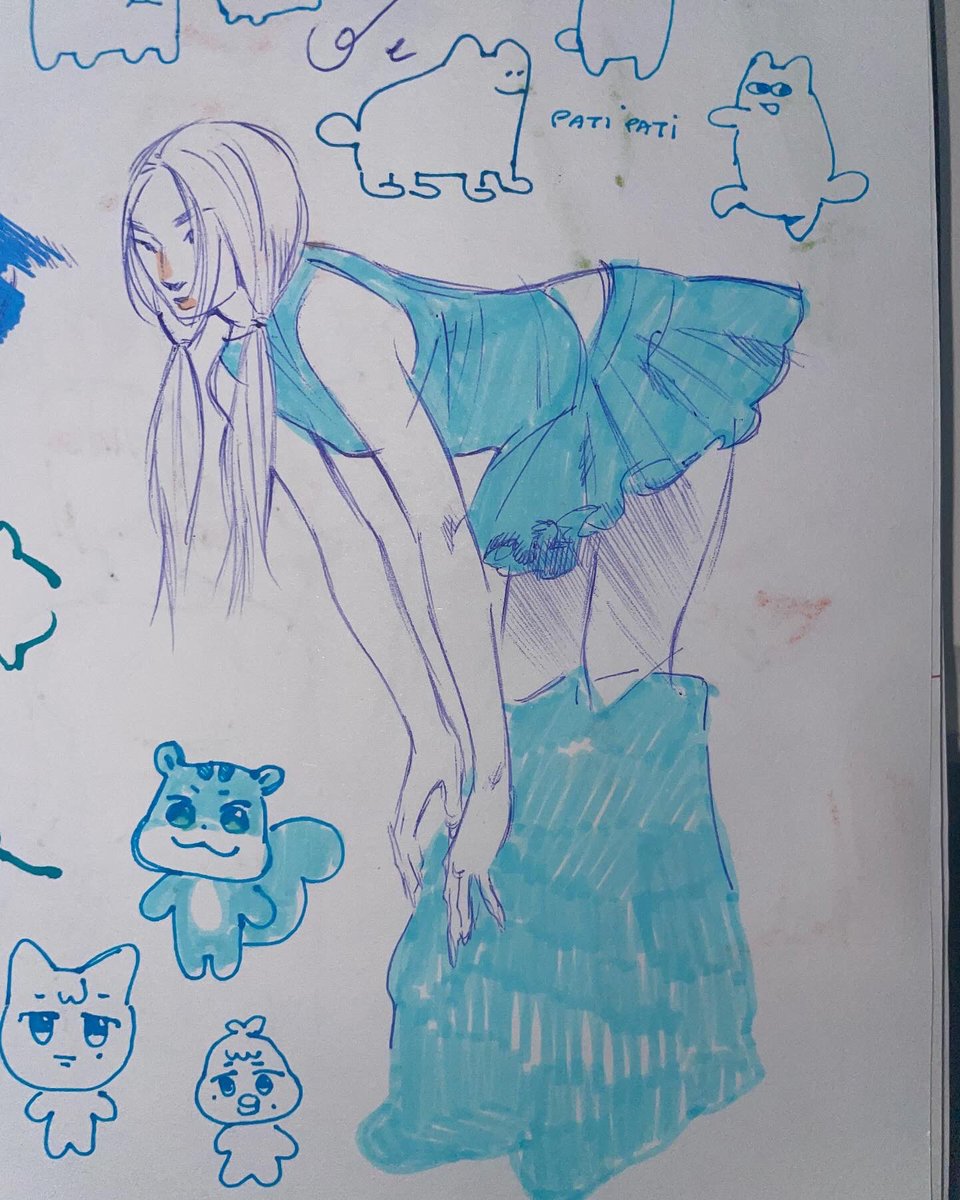 PATI PATI